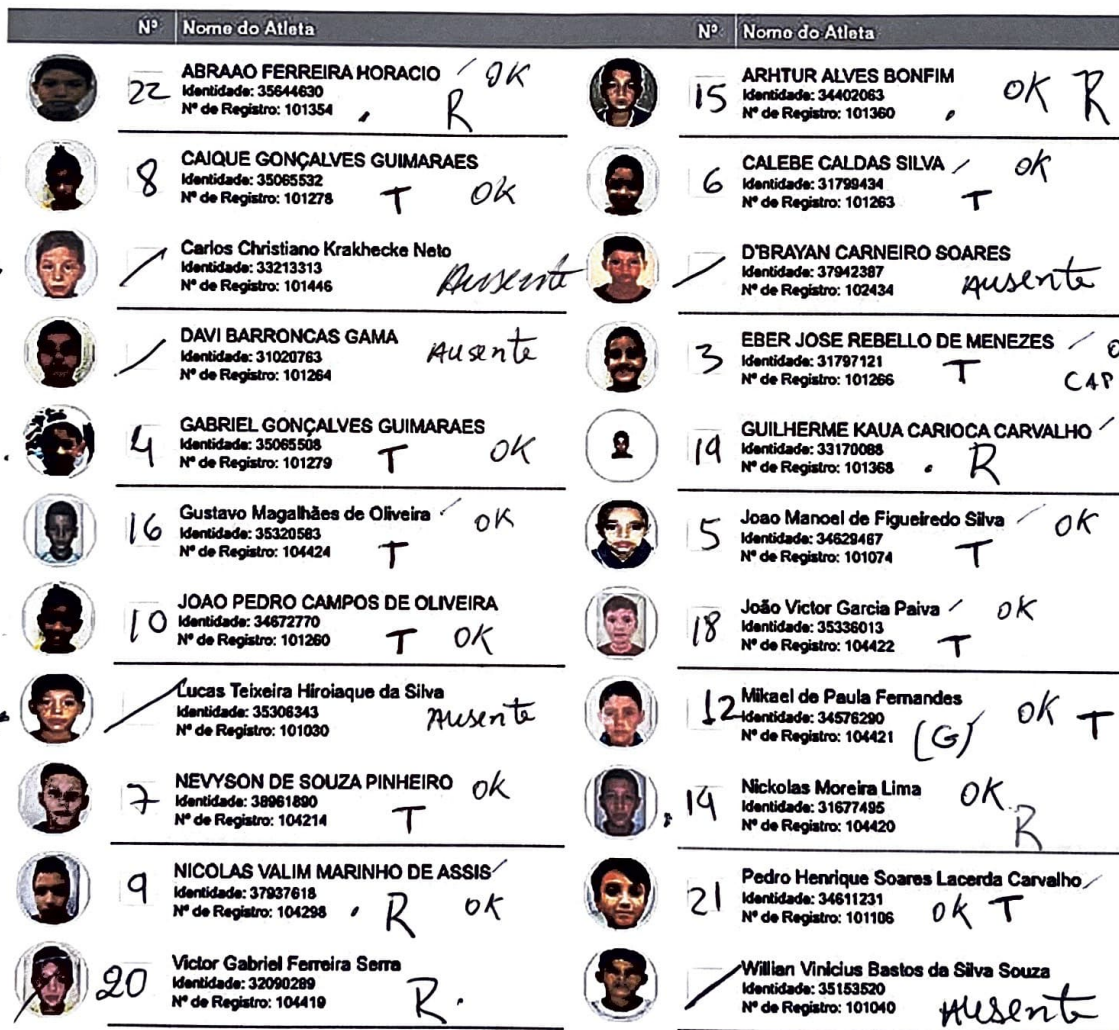 Nº Nome do Atleta
22 ABRAAO FERREIRA HORACIO OK
Identidade: 35644630
Nº de Registro: 101354 R
8 CAIQUE GONÇALVES GUIMARAES
Identidade: 35065532
Nº de Registro: 101278 T OK
Carlos Christiano Krakhecke Neto
Identidade: 33213313
Nº de Registro: 101446 Ausente
DAVI BARRONCAS GAMA
Identidade: 31020763 Ausente
Nº de Registro: 101264
4 GABRIEL GONÇALVES GUIMARAES
Identidade: 35065508
Nº de Registro: 101279 T OK
16 Gustavo Magalhães de Oliveira OK
Identidade: 35320583
Nº de Registro: 104424 T
10 JOAO PEDRO CAMPOS DE OLIVEIRA
Identidade: 34672770
Nº de Registro: 101260 T OK
Lucas Teixeira Hiroiaque da Silva
Identidade: 35306343
Nº de Registro: 101030 Ausente
7 NEVYSON DE SOUZA PINHEIRO OK
Identidade: 38961890
Nº de Registro: 104214 T
9 NICOLAS VALIM MARINHO DE ASSIS
Identidade: 37937618
Nº de Registro: 104298 R OK
20 Victor Gabriel Ferreira Serra
Identidade: 32090289
Nº de Registro: 104419 R.
Nº Nome do Atleta
15 ARHTUR ALVES BONFIM OK R
Identidade: 34402063
Nº de Registro: 101360
6 CALEBE CALDAS SILVA OK
Identidade: 31799434
Nº de Registro: 101263 T
D'BRAYAN CARNEIRO SOARES
Identidade: 37942387
Nº de Registro: 102434 Ausente
3 EBER JOSE REBELLO DE MENEZES
Identidade: 31797121
Nº de Registro: 101266 T CAP
19 GUILHERME KAUA CARIOCA CARVALHO
Identidade: 33170088
Nº de Registro: 101368 R
5 Joao Manoel de Figueiredo Silva OK
Identidade: 34629467
Nº de Registro: 101074 T
18 João Victor Garcia Paiva OK
Identidade: 35336013
Nº de Registro: 104422 T
12 Mikael de Paula Fernandes
Identidade: 34576290 OK T
Nº de Registro: 104421 (G)
14 Nickolas Moreira Lima OK
Identidade: 31677495
Nº de Registro: 104420 R
21 Pedro Henrique Soares Lacerda Carvalho
Identidade: 34611231
Nº de Registro: 101106 OK T
Willian Vinicius Bastos da Silva Souza
Identidade: 35153520
Nº de Registro: 101040 Ausente